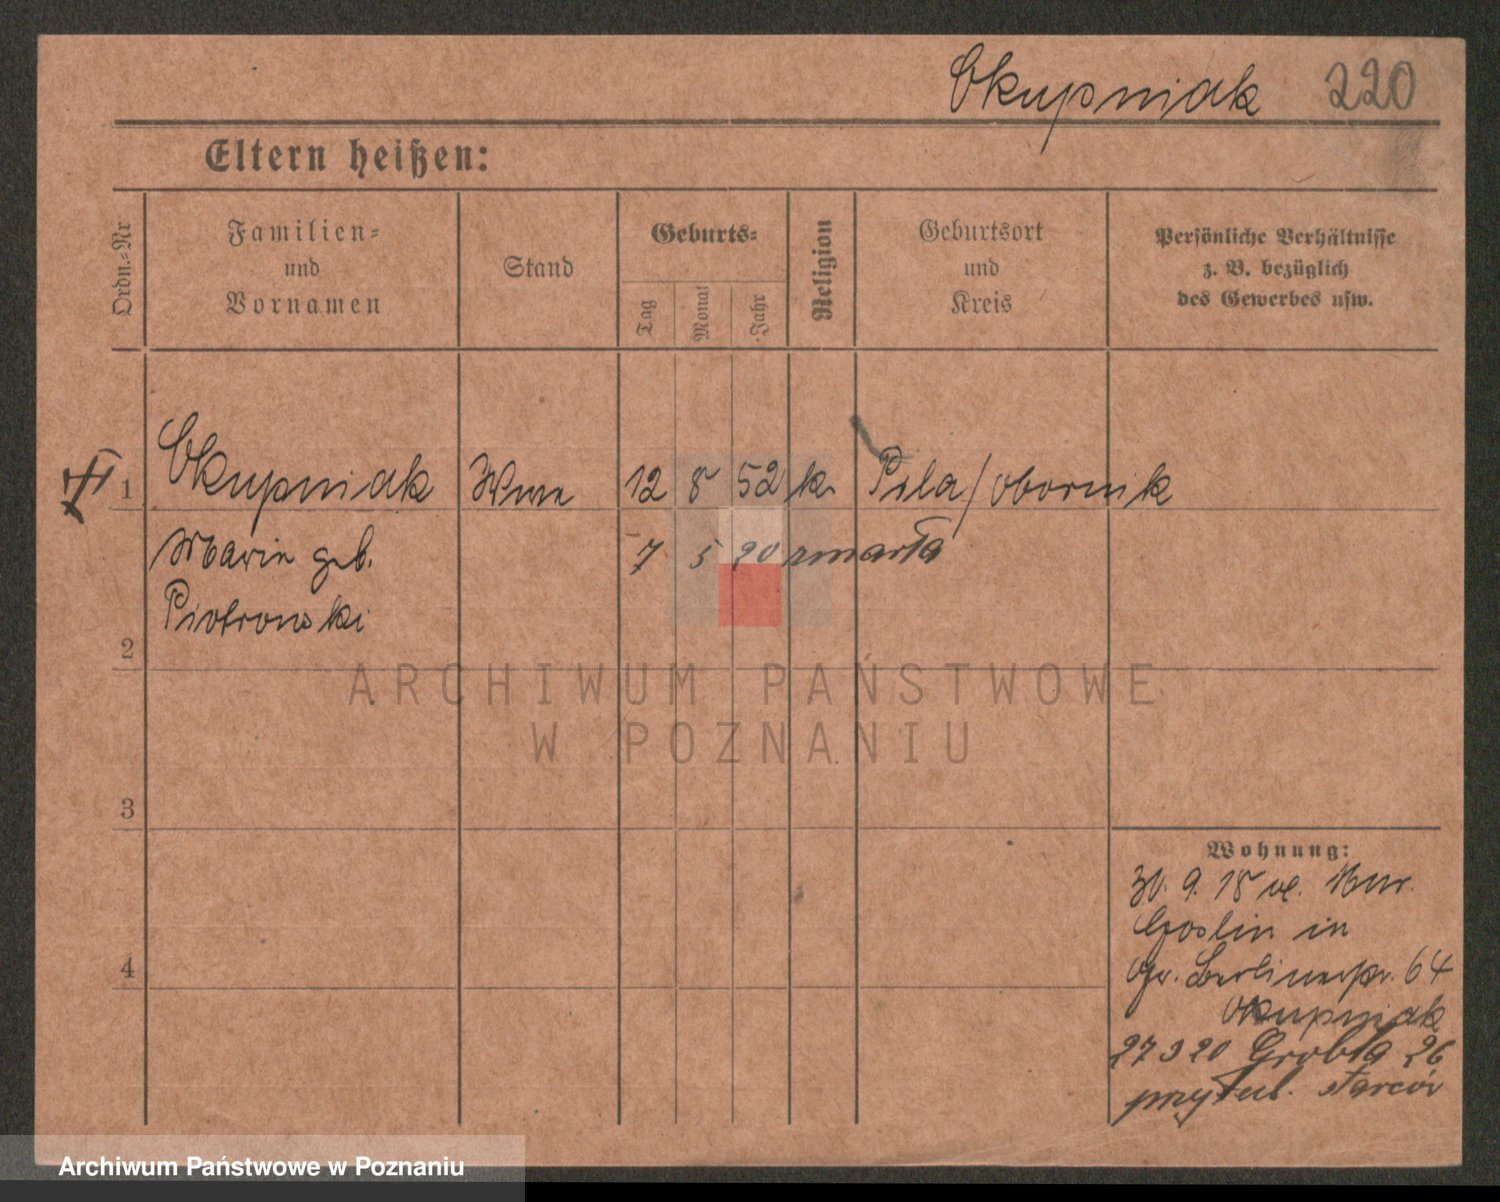 Okupniak 220
Eltern heißen:
Ordn.-Nr
Familien-
und
Vornamen
Stand
Geburts-
Tag
Monat
Jahr
Religion
Geburtsort
und
Kreis
Persönliche Verhältnisse
z. B. bezüglich
des Gewerbes usw.
1 Okupniak 12 8 52 k. Pila/Obornik
Marie geb. 7 5 20 zmarła
Piotrowski
2
3
4
Wohnung:
30. 9. 18 v. Mur.
Goslin in
64
Okupniak
27 3 20 Grobla 26
przytuł. starców
ARCHIWUM PAŃSTWOWE
W POZNANIU
Archiwum Państwowe w Poznaniu